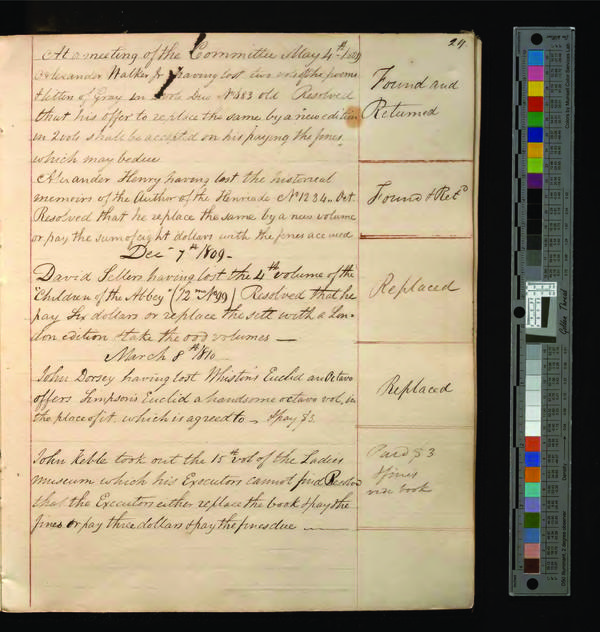 24.
At a meeting of the Committee May 4th 1809
Alexander Walker Jr having lost two vols of the poems
& letters of Gray in 2 vols Duo No 483 old Resolved
that his offer to replace the same by a new edition
in 2 vols shall be accepted on his paying the fines
which may be due
Found and
Returned
Alexander Henry having lost the historical
memoirs of the Author of the Henriade No 1234 Oct.
Resolved that he replace the same by a new volume
or pay the sum of eight dollars with the fines accrued
Found & Retd
Decr 7th 1809
David Sellers having lost the 4th volume of the
"Children of the Abbey" (12mo No 99) Resolved that he
pay Six dollars or replace the sett with a Lon-
don edition & take the odd volumes
Replaced
March 8th 1810
John Dorsey having lost Whiston's Euclid an Octavo
offers Simpson's Euclid a handsome octavo vol. in
the place of it which is agreed to & pay $3.
Replaced
John Keble took out the 15th vol of the Ladies
museum which his Executors cannot find Resolved
that the Executors either replace the book & pay the
fines or pay three dollars & pay the fines due
Paid $3
& fines
book